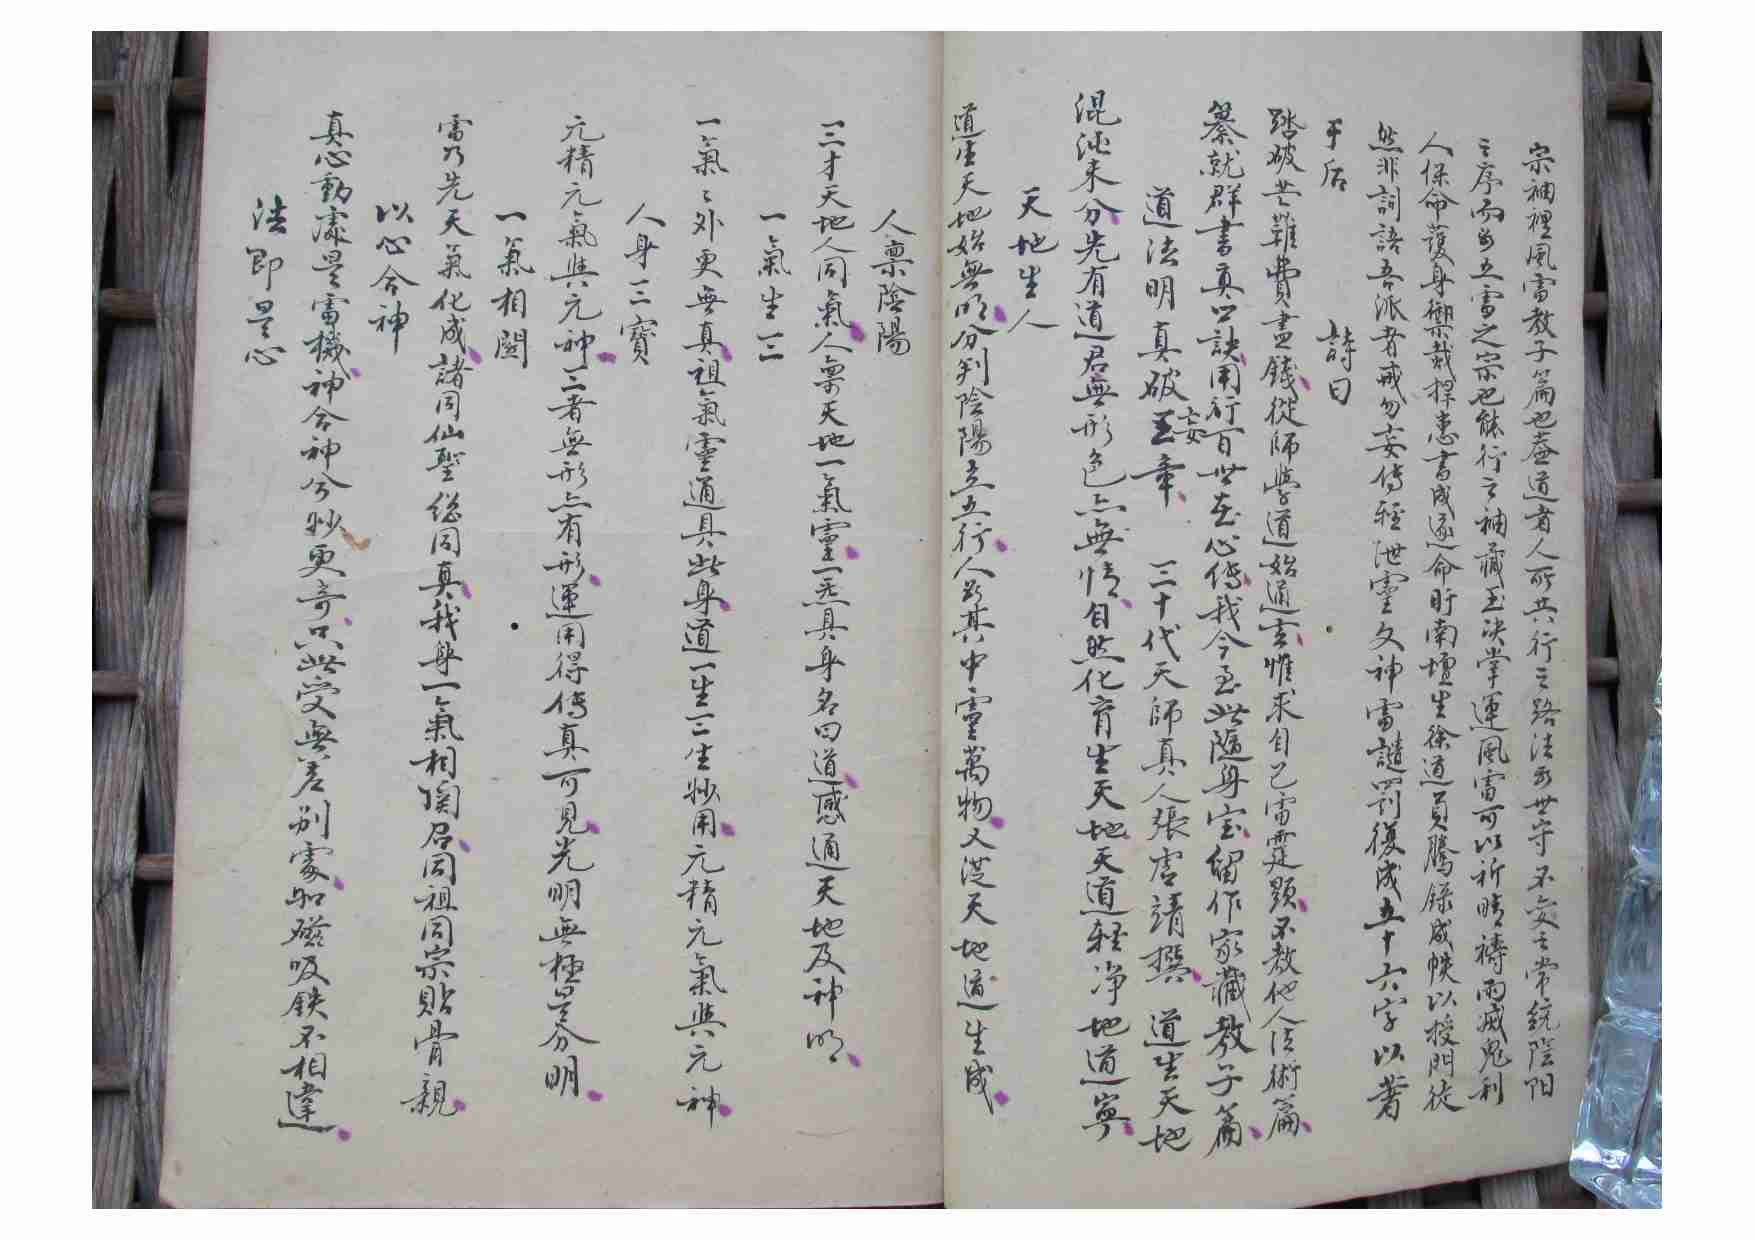 宗袖裡風雷教子篇也蓋道者人所共行之路法乃世守不安之常統陰陽
之序而為五雷之宗也能行之袖藏玉決掌運風雷可以祈晴禱雨滅鬼利
人保命護身禦栽捍患書成遂命盱南壇生徐道員騰錄成帙以授門徒
然非詞語吾派者戒勿妄傳輕泄靈文神雷譴罰後成五十六字以著
于后　詩曰
踏破芒鞋費盡錢從師學道始通玄惟求自己雷霆顯不教他人法術篇
纂就群書真口訣用行百世在心傳我今至此隨身宝留作家藏教子篇
道法明真破妄章　三十代天師真人張虛靖撰　道生天地
混沌未分先有道君無形色亦無情自然化育生天地天道輕净地道寧
天地生人
道生天地始無明分判陰陽立五行人於其中靈萬物又從天地道生成
人禀陰陽
三才天地人同氣人禀天地一氣靈一炁具身名曰道感通天地及神明
一氣生三
一氣之外更無真祖氣靈通具此身道一生三生妙用元精元氣與元神
人身三寶
元精元氣與元神三者無形亦有形運用得傳真可見光明無極是分明
一氣相關
雷乃先天氣化成諸司仙聖総同真我身一氣相関召同祖同宗貼骨親
以心合神
真心動處是雷機神合神兮妙更奇只此受無差别處如磁吸鉄不相違
法即是心